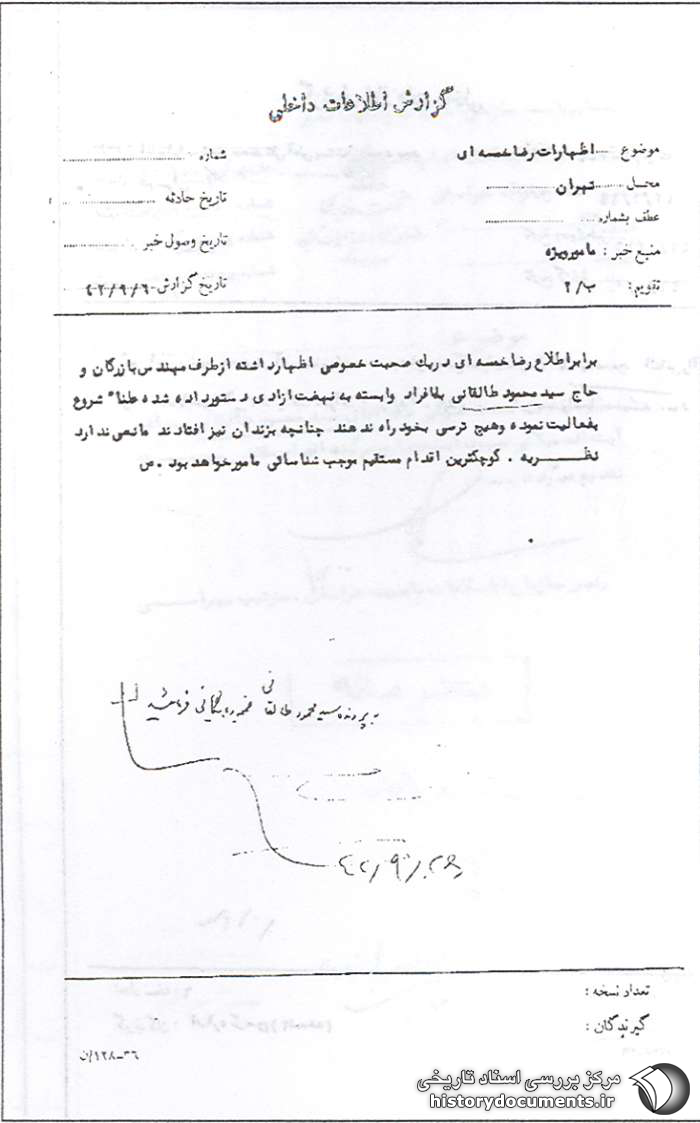 گزارش اطلاعات داخلی
موضوع ..... اظهارات رضا خمسه ای
شماره ....................
محل ...... تهران ............
تاریخ حادثه ..............
عطف بشماره ....................
تاریخ وصول خبر ..............
منبع خبر : مامور ویژه
تاریخ گزارش ۴۲/۹/۶
تقویم: ب/۲
برابر اطلاع رضا خمسه ای در یک صحبت خصوصی اظهار داشته از طرف مهندس بازرگان و
حاج سید محمود طالقانی بافراد وابسته به نهضت ازادی دستور داده شده علنا" شروع
بفعالیت نموده و هیچ ترسی بخود راه ندهند چنانچه بزندان نیز افتادند مانعی ندارد
نظریه . کوچکترین اقدام مستقیم موجب شناسائی مامور خواهد بود . ص
به پرونده سید محمود طالقانی ضمیمه بایگانی فرمائید
تعداد نسخه :
گیرندگان :
۳۶-۱۲۸/ن
مرکز بررسی اسناد تاریخی
historydocuments.ir